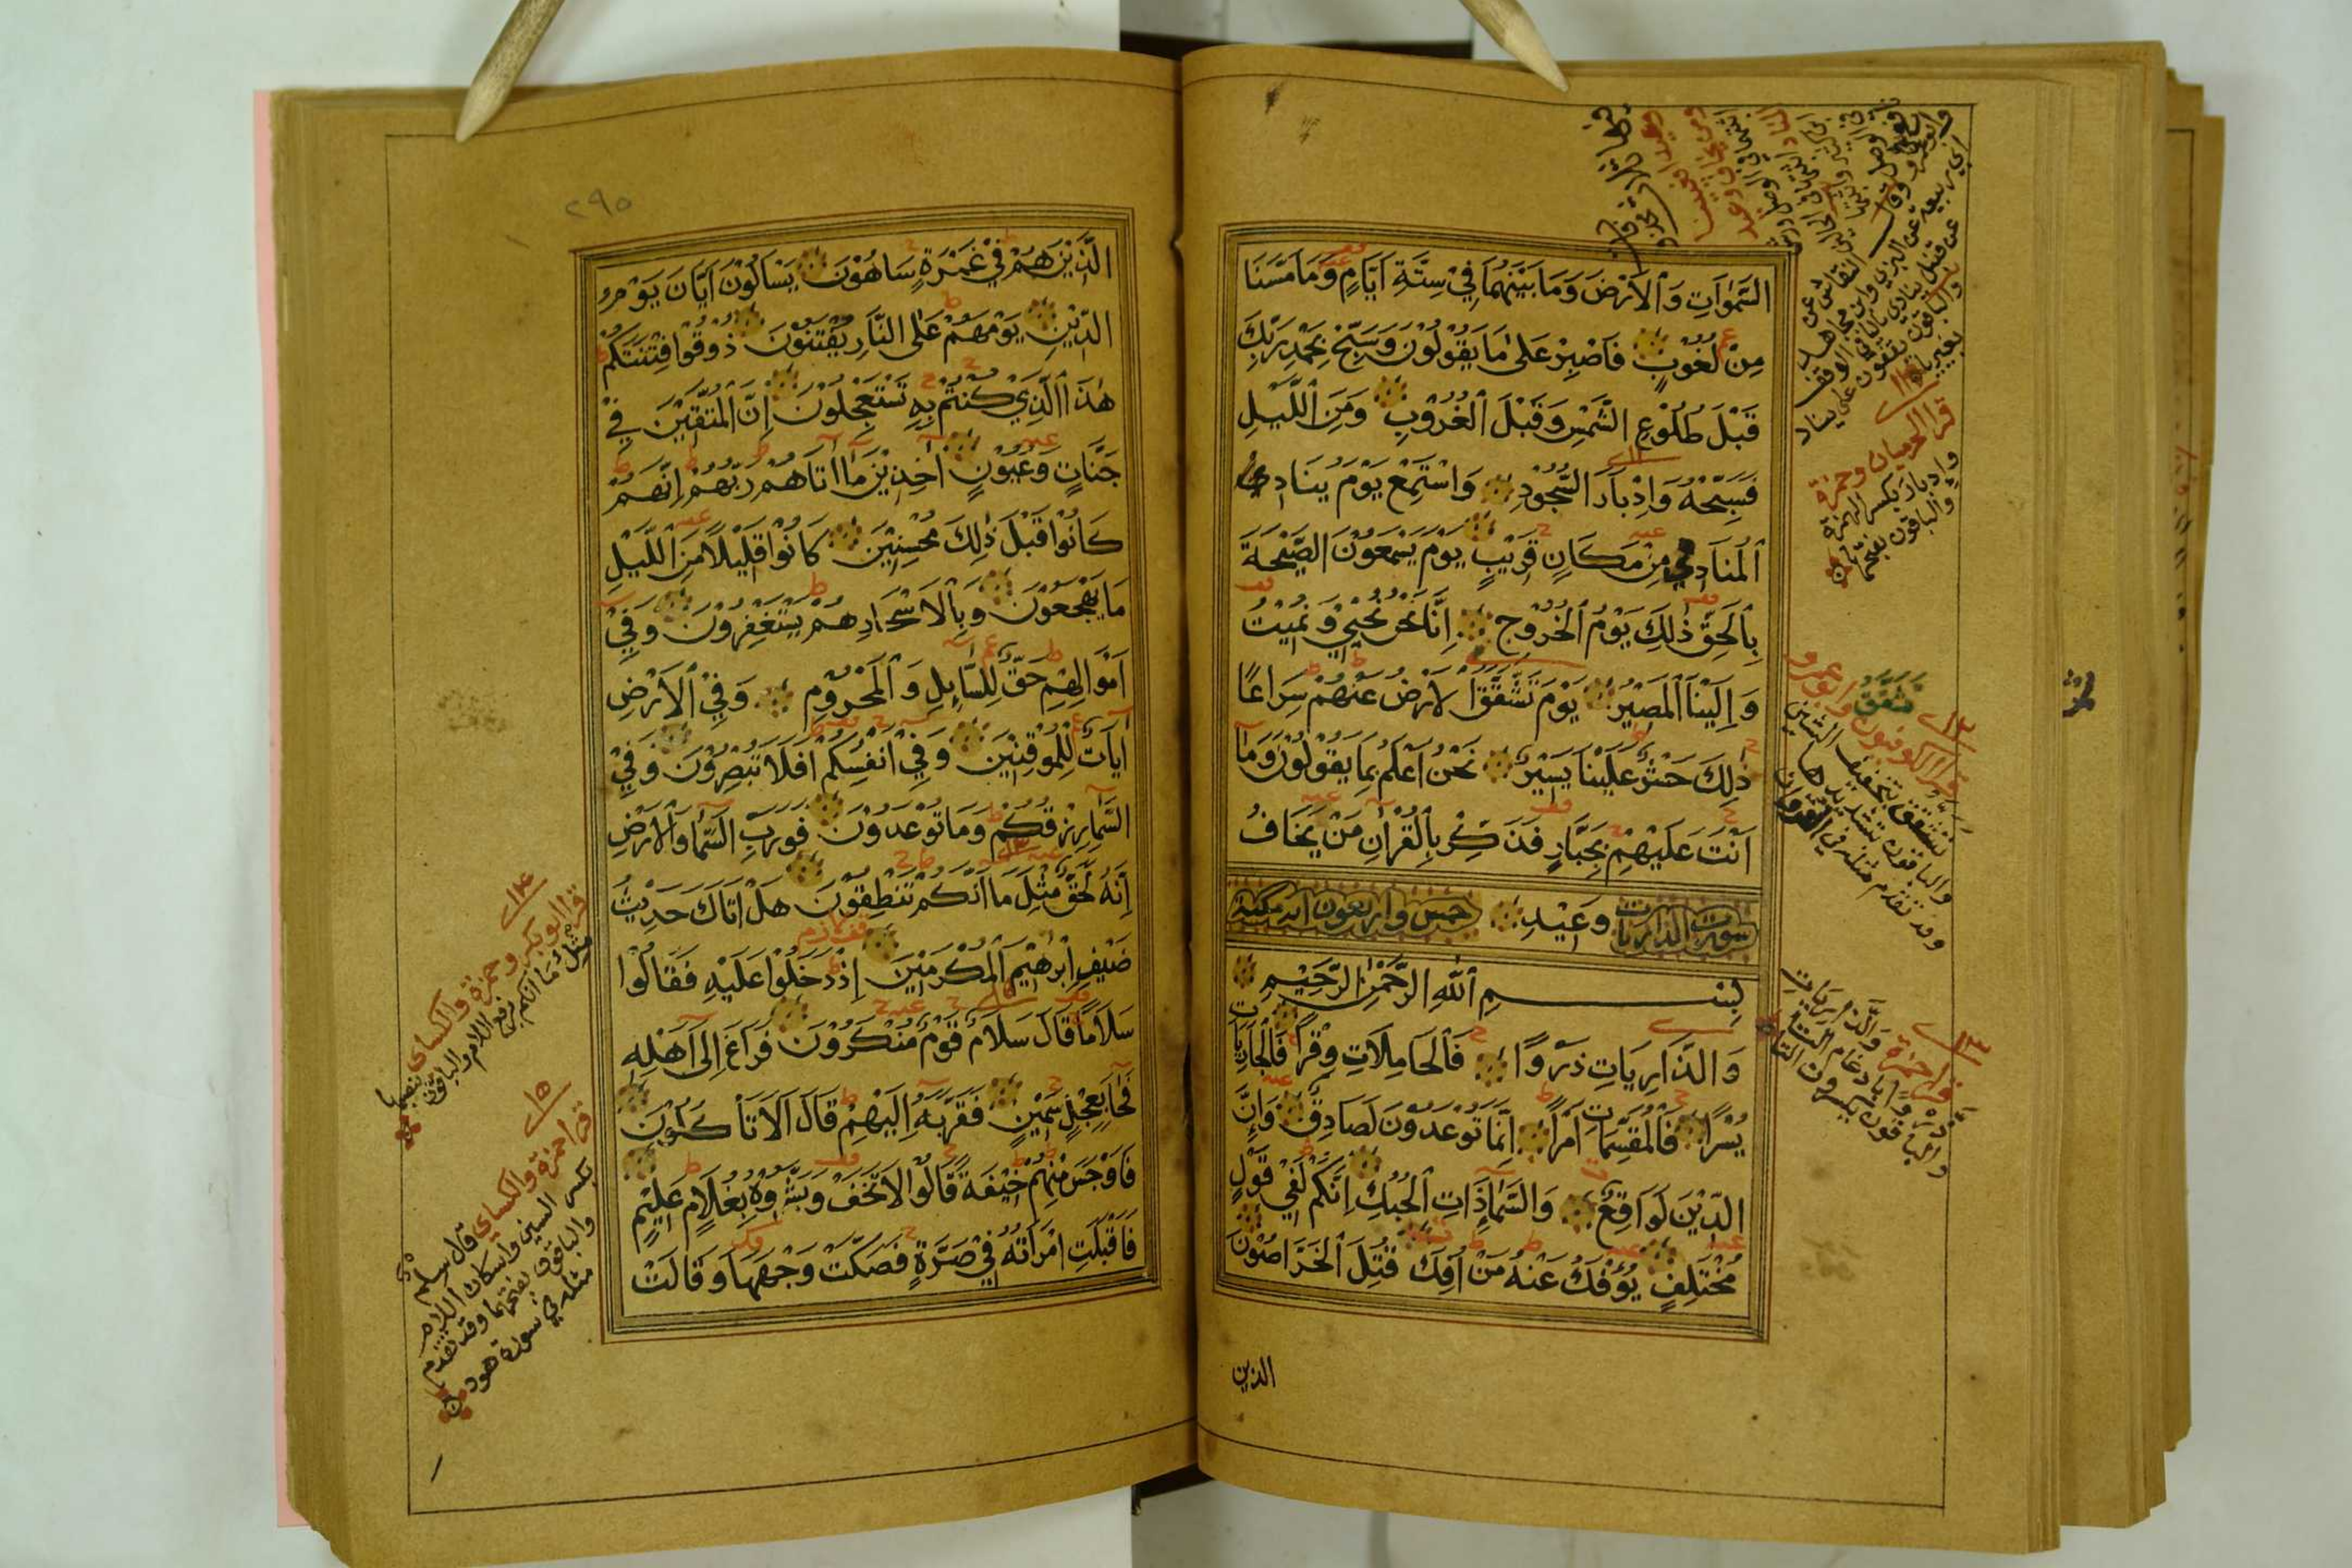 السَّمٰوَاتِ وَالْاَرْضَ وَمَا بَيْنَهُمَا فِيْ سِتَّةِ اَيَّامٍ وَمَا مَسَّنَا
مِنْ لُغُوْبٍ فَاصْبِرْ عَلٰى مَا يَقُوْلُوْنَ وَسَبِّحْ بِحَمْدِ رَبِّكَ
قَبْلَ طُلُوْعِ الشَّمْسِ وَقَبْلَ الْغُرُوْبِ وَمِنَ اللَّيْلِ
فَسَبِّحْهُ وَاِدْبَارَ السُّجُوْدِ وَاسْتَمِعْ يَوْمَ يُنَادِي
الْمُنَادِيْ مِنْ مَكَانٍ قَرِيْبٍ يَوْمَ يَسْمَعُوْنَ الصَّيْحَةَ
بِالْحَقِّ ذٰلِكَ يَوْمُ الْخُرُوْجِ اِنَّا نَحْنُ نُحْيِيْ وَنُمِيْتُ
وَاِلَيْنَا الْمَصِيْرُ يَوْمَ تَشَّقَّقُ الْاَرْضُ عَنْهُمْ سِرَاعًا
ذٰلِكَ حَشْرٌ عَلَيْنَا يَسِيْرٌ نَحْنُ اَعْلَمُ بِمَا يَقُوْلُوْنَ وَمَا
اَنْتَ عَلَيْهِمْ بِجَبَّارٍ فَذَكِّرْ بِالْقُرْاٰنِ مَنْ يَخَافُ
سورت الذاريات وَعِيْدِ خمس واربعون ايه مكية
بِسْمِ اللهِ الرَّحْمٰنِ الرَّحِيْمِ
وَالذَّارِيَاتِ ذَرْوًا فَالْحَامِلَاتِ وِقْرًا فَالْجَارِيَاتِ
يُسْرًا فَالْمُقَسِّمَاتِ اَمْرًا اِنَّمَا تُوْعَدُوْنَ لَصَادِقٌ وَاِنَّ
الدِّيْنَ لَوَاقِعٌ وَالسَّمَاءِ ذَاتِ الْحُبُكِ اِنَّكُمْ لَفِيْ قَوْلٍ
مُخْتَلِفٍ يُؤْفَكُ عَنْهُ مَنْ اُفِكَ قُتِلَ الْخَرَّاصُوْنَ
الذين
قرا الحرميان وحمزة
وادبار بكسر الهمزة
والباقون بفتحها
تشقق
قرا الكوفيون وابو عمرو
تشقق بتخفيف الشين
والباقون بتشديدها
وقد تقدم مثله في الفرقان
قرا حمزة والذاريات
ذروا بادغام التا
والباقون بكسرون التا
٢٩٥
الَّذِيْنَ هُمْ فِيْ غَمْرَةٍ سَاهُوْنَ يَسْاَلُوْنَ اَيَّانَ يَوْمُ
الدِّيْنِ يَوْمَ هُمْ عَلَى النَّارِ يُفْتَنُوْنَ ذُوْقُوْا فِتْنَتَكُمْ
هٰذَا الَّذِيْ كُنْتُمْ بِهِ تَسْتَعْجِلُوْنَ اِنَّ الْمُتَّقِيْنَ فِيْ
جَنَّاتٍ وَعُيُوْنٍ اٰخِذِيْنَ مَا اٰتَاهُمْ رَبُّهُمْ اِنَّهُمْ
كَانُوْا قَبْلَ ذٰلِكَ مُحْسِنِيْنَ كَانُوْا قَلِيْلًا مِنَ اللَّيْلِ
مَا يَهْجَعُوْنَ وَبِالْاَسْحَارِ هُمْ يَسْتَغْفِرُوْنَ وَفِيْ
اَمْوَالِهِمْ حَقٌّ لِلسَّايِلِ وَالْمَحْرُوْمِ وَفِيْ الْاَرْضِ
اٰيَاتٌ لِلْمُوْقِنِيْنَ وَفِيْ اَنْفُسِكُمْ اَفَلَا تُبْصِرُوْنَ وَفِيْ
السَّمَاءِ رِزْقُكُمْ وَمَا تُوْعَدُوْنَ فَوَرَبِّ السَّمَاءِ وَالْاَرْضِ
اِنَّهُ لَحَقٌّ مِثْلَ مَا اَنَّكُمْ تَنْطِقُوْنَ هَلْ اَتَاكَ حَدِيْثُ
ضَيْفِ اِبْرٰهِيْمَ الْمُكْرَمِيْنَ اِذْ دَخَلُوْا عَلَيْهِ فَقَالُوْا
سَلَامًا قَالَ سَلَامٌ قَوْمٌ مُنْكَرُوْنَ فَرَاغَ اِلٰى اَهْلِهِ
فَجَاءَ بِعِجْلٍ سَمِيْنٍ فَقَرَّبَهُ اِلَيْهِمْ قَالَ اَلَا تَاْكُلُوْنَ
فَاَوْجَسَ مِنْهُمْ خِيْفَةً قَالُوْا لَا تَخَفْ وَبَشَّرُوْهُ بِغُلَامٍ عَلِيْمٍ
فَاَقْبَلَتِ امْرَاَتُهُ فِيْ صَرَّةٍ فَصَكَّتْ وَجْهَهَا وَقَالَتْ
قرا ابو بكر وحمزة والكساي
مثل ما انكم برفع اللام والباقون بنصبها
قرا حمزة والكساي قال سلم
بكسر السين واسكان اللام
والباقون بفتحهما وقد تقدم
مثله في سورة هود